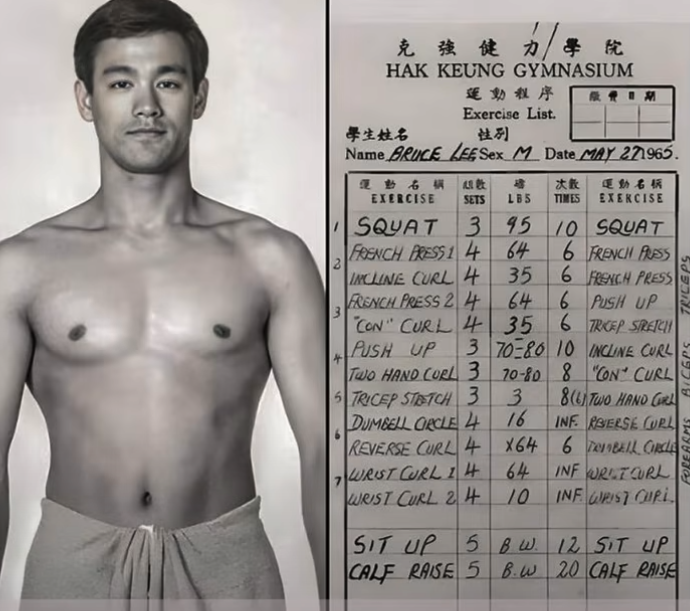 克強健力學院
HAK KEUNG GYMNASIUM
運動程序
Exercise List.
繳費日期
學生姓名 性別
Name BRUCE LEE Sex M Date MAY 27 1965.
運動名稱 組數 磅 次數 運動名稱
EXERCISE SETS LBS TIMES EXERCISE
1 SQUAT 3 95 10 SQUAT
FRENCH PRESS 1 4 64 6 FRENCH PRESS
2 INCLINE CURL 4 35 6 FRENCH PRESS
FRENCH PRESS 2 4 64 6 PUSH UP
3 "CON" CURL 4 35 6 TRICEP STRETCH
PUSH UP 3 70-80 10 INCLINE CURL
4 TWO HAND CURL 3 70-80 8 "CON" CURL
5 TRICEP STRETCH 3 3 8(6) TWO HAND CURL
DUMBELL CIRCLE 4 16 INF. REVERSE CURL
6 REVERSE CURL 4 X64 6 DUMBELL CIRCLE
7 WRIST CURL 1 4 64 INF WRIST CURL
WRIST CURL 2 4 10 INF. WRIST CURL
SIT UP 5 B.W. 12 SIT UP
CALF RAISE 5 B.W 20 CALF RAISE
TRICEPS
BICEPS
FOREARMS